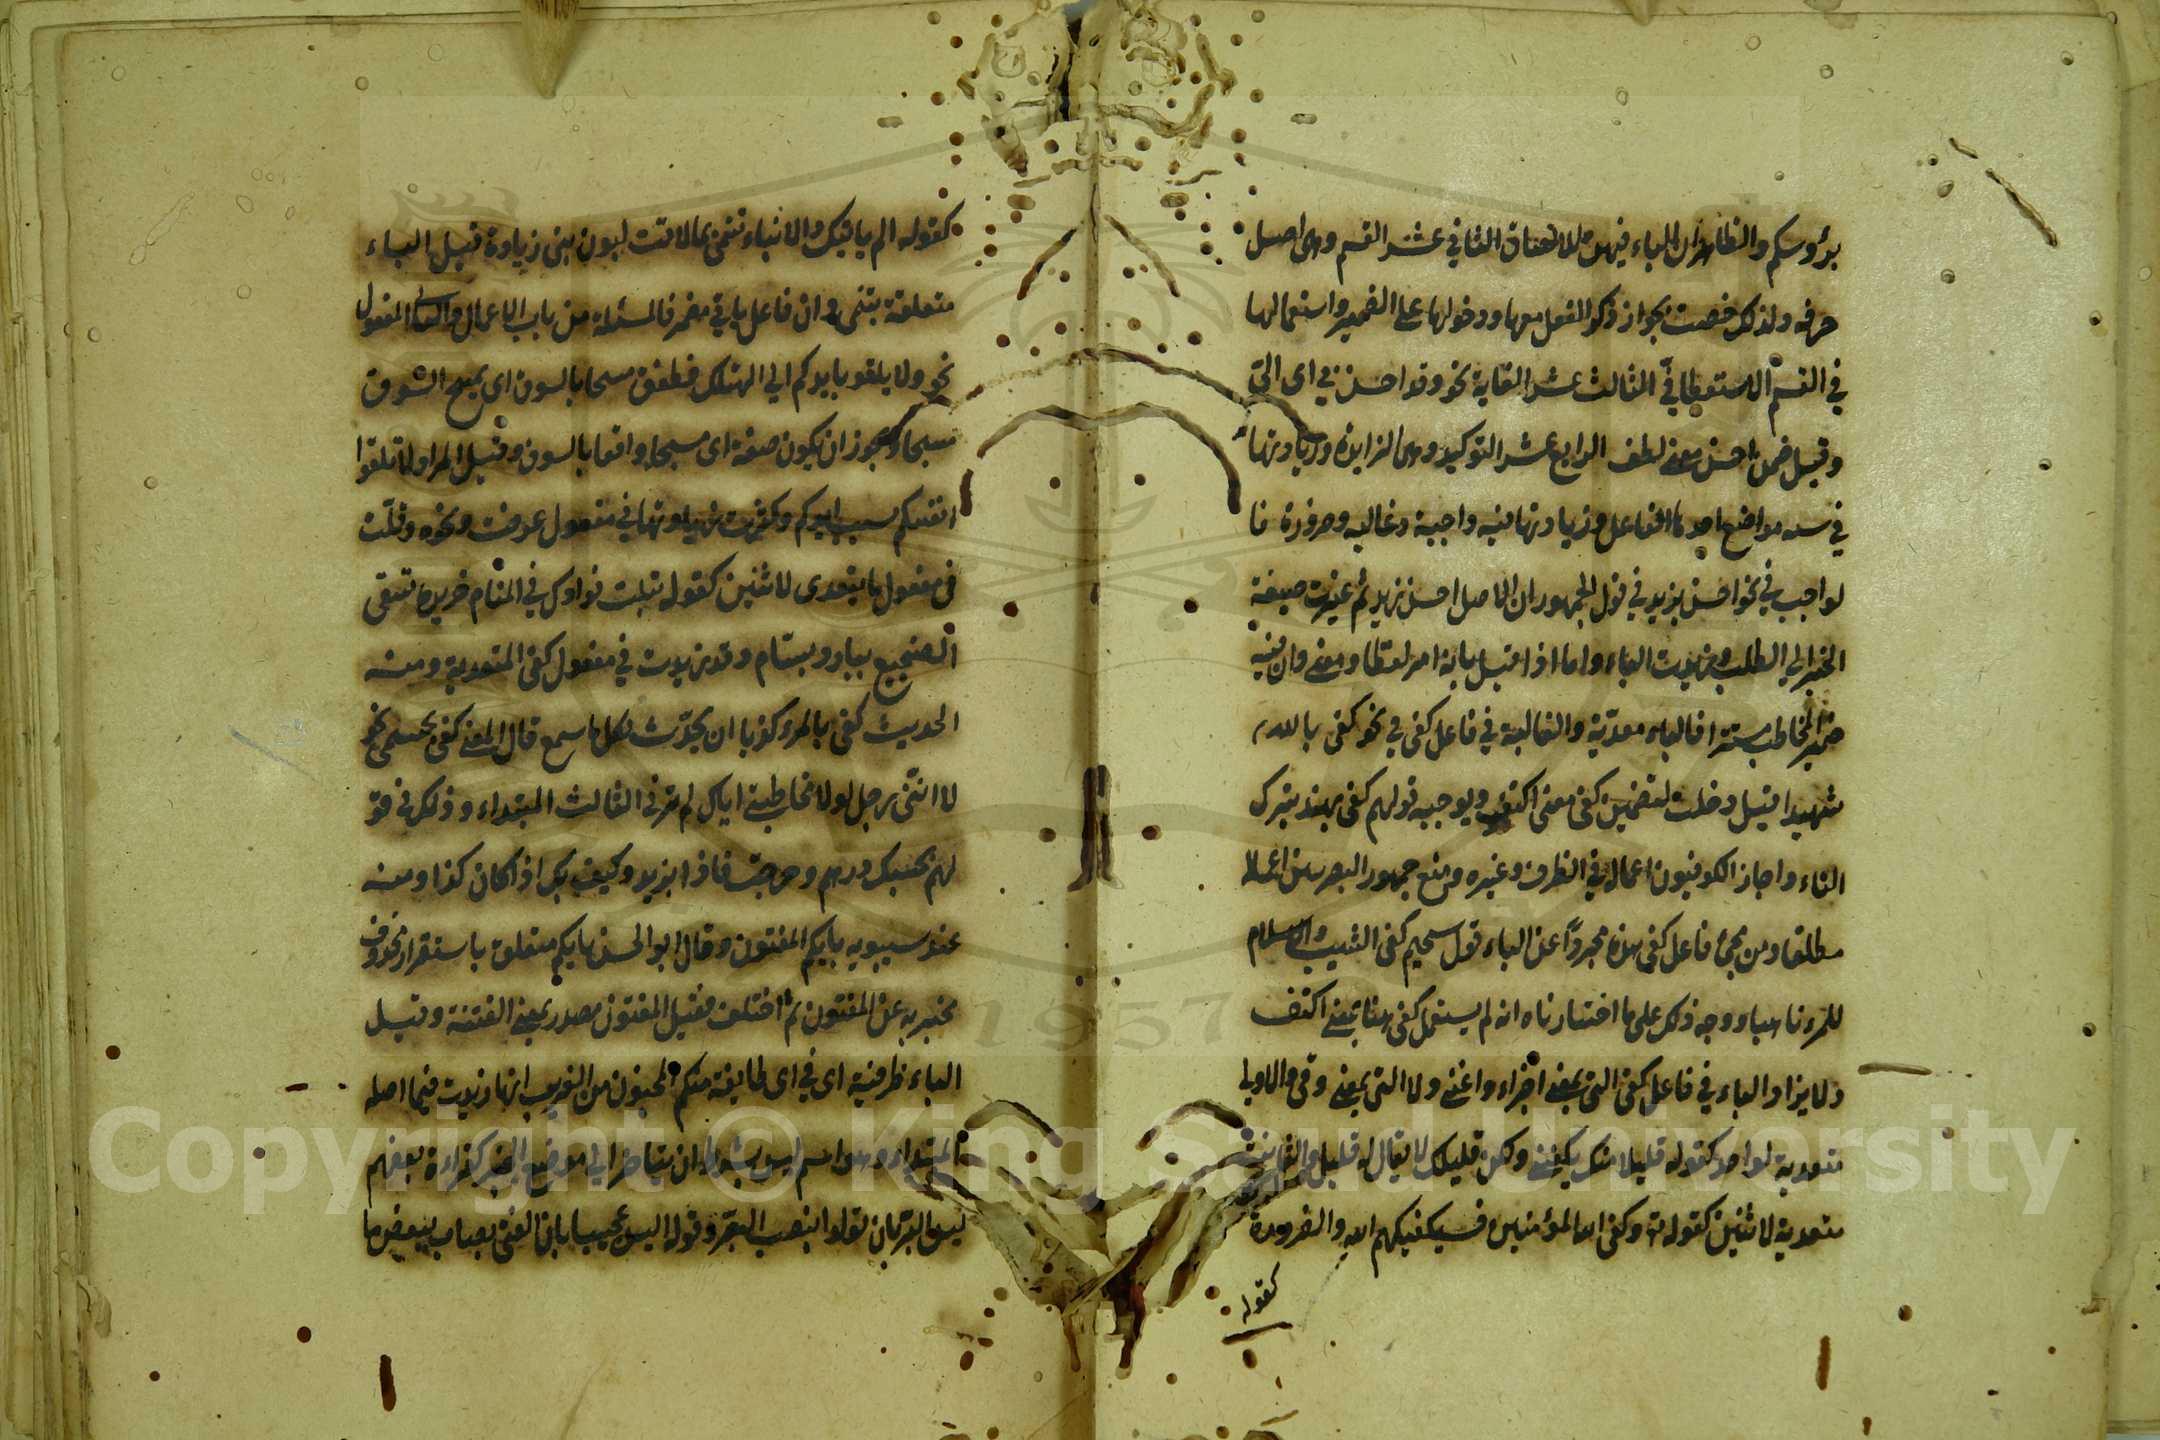 برؤسكم والظاهر ان الباء فيهما للالصاق الثاني عشر القسم وهي اصل
حرفه ولذلك خصت بجواز ذكر الفعل معها ودخولها على الضمير واستعمالها
في القسم الاستعطافي الثالث عشر الغاية نحو وقد احسن بي اى الي
وقيل ضمن احسن معنى لطف الرابع عشر التوكيد وهي الزايدة وزيادتها
في سته مواضع احدها الفاعل وزيادتها فيه واجبة وغالبه وضرورة فا
لواجب في نحو احسن بزيد في قول الجمهور ان الاصل احسن زيد ثم غيرت صيغة
الخبر الي الطلب وزيدت الباء واما اذا قيل بانه امر لفظا ومعنى وان فيه
ضمير المخاطب مستترا فالباء معدّية والغالبة في فاعل كفى في نحو كفى بالله
شهيدا قيل دخلت لتضمين كفى معنى اكتف ويوجبه قولهم كفى بهند بترك
التاء واجاز الكوفيون اعماله في الظرف وغيره ومنع جمهور البصريين اعماله
مطلقا ومن مجئ فاعل كفى هذه مجرداً عن الباء قول سحيم كفى الشيب والاسلام
للمرء ناهيا ووجه ذلك على ما اخترناه انه لم يستعمل كفى هنا بمعنى اكتف
ولا يزاد الباء في فاعل كفى التي بمعنى اجزاء واغنى ولا التي بمعنى وقى والاولى
متعدية لواحد كقوله قليلا منك يكفينى ولكن قليلك لا يقال له قليل والثانية
متعدية لاثنين كقوله تع وكفى الله المؤمنين فسيكفيكهم الله والضرورة
كقوله
كقوله الم ياتيك والانباء تنمى بما لاقت لبون بني زيادة قيل الباء
متعلقة بتنمى وان فاعل ياتي مضمر فالمسئلة من باب الاعمال والثاني المفعول
نحو ولا تلقو بايديكم الى التهلكة فطفق مسحا بالسوق اى يمسح السوق
مسحا ويجوز ان يكون صفة اى مسحا واقعا بالسوق وقيل المراد لا تلقوا
انفسكم بسبب ايديكم وكثرت زيادتها في مفعول عرفت ونحوه وقلّت
فى مفعول ما يتعدى لاثنين كقوله تبلت فؤادك في المنام خريدة تسقى
الضجيع ببارد بسّام وقد زيدت في مفعول كفى المتعدية ومنه
الحديث كفى بالمرء كذبا ان يحدّث بكل ما سمع قال المعنى كفى بجسمى نحو
لا انّنى رجل لولا مخاطبتى اياك لم ترني الثالث المبتداء وذلك في قو
لهم بحسبك درهم وخرجت فاذا بزيد وكيف بك اذا كان كذا ومنه
عند سيبويه بايكم المفتون وقال ابو الحسن بايكم متعلق باستقرار محذوف
مخبر به عن المفتون ثم اختلف فقيل المفتون مصدر بمعنى الفتنة وقيل
الباء ظرفية اى في اى طايفة منكم المجنون من الغريب انها زيدت فيما اصله
المبتداء وهو اسم ليس بشرط ان يتاخر الى موضع الخبر كقراءة بعضهم
ليس البر بان تولوا بنصب البر وقوله اليس عجيبا بان الفتى يصاب ببعض ما